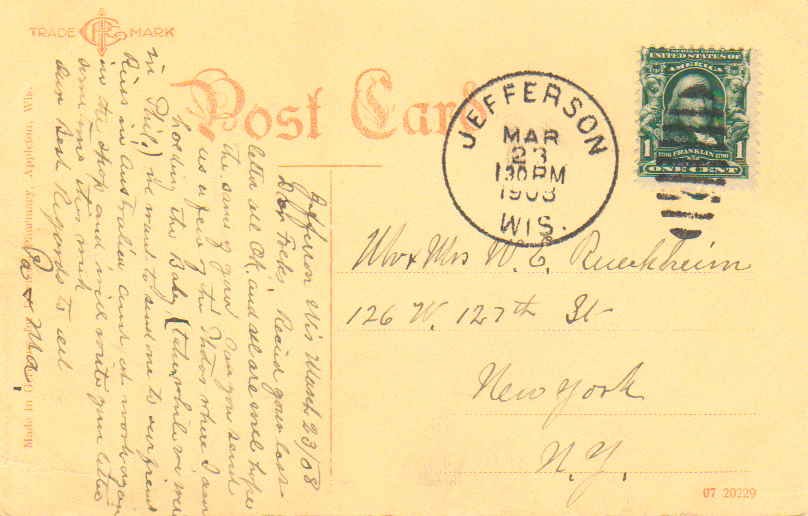 TRADE MARK
Post Card
JEFFERSON
MAR
23
130 PM
1908
WIS.
UNITED STATES OF
AMERICA
1 FRANKLIN 1
ONE CENT
Jefferson Wis March 23/08
Dear Folks Recivd your last
letter all OK. and all are well hope
the same of you Can you send
us a few of the Photos where I am
holding the Baby (taken while we were
in Phil.) we want to send one to our friend
Ries in Australia am at work again
in the shop and will write you letter
some time this week
our Best Regards to all
Pa & Ma,
Mr & Mrs W. C. Rueckheim
126 W. 127th St
New York
N.Y.
07 20229
Made in